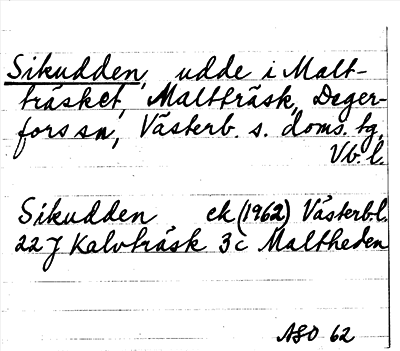 Sikudden, udde i Malt-
träsket, Maltträsk, Deger-
fors sn, Västerb. s. doms. tg,
Vb. l.
Sikudden ek (1962) Västerb.l.
22 J Kalvträsk 3c Maltheden
ASO 62